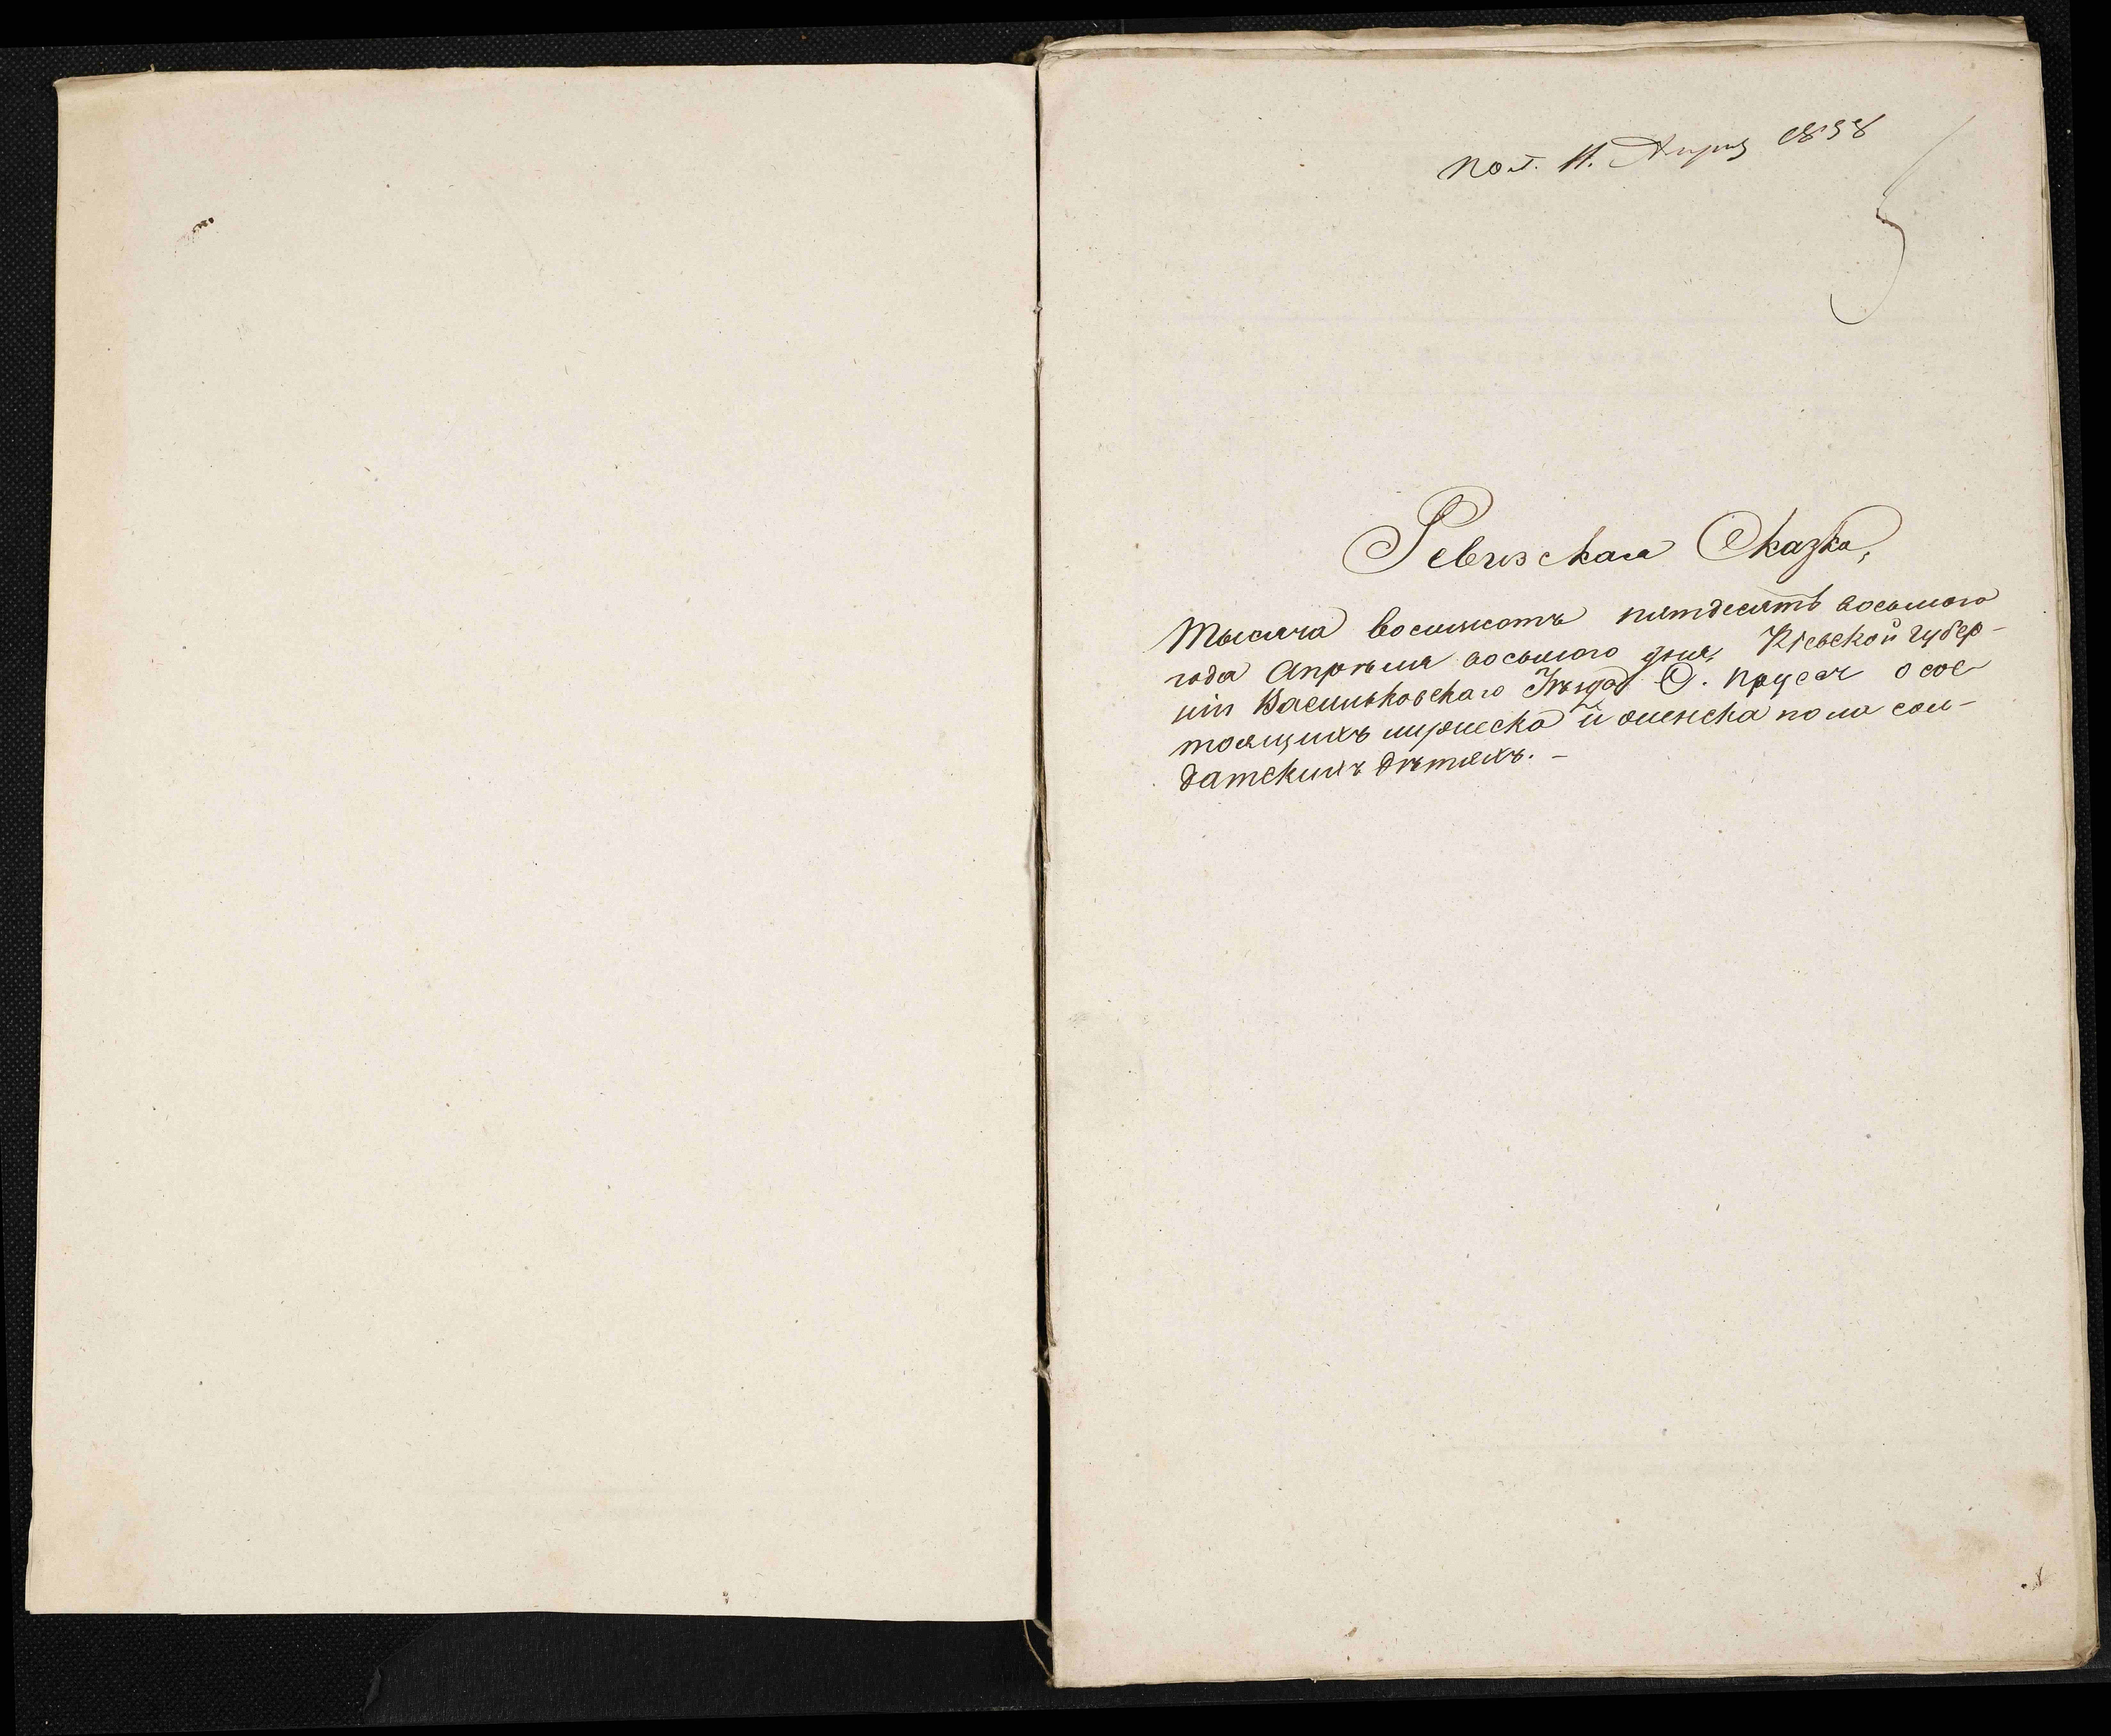 Пол. 11. Апрѣ 1858
Ревизская Сказка,
Тысяча восемьсотъ пятдесятъ восьмого
года Апрѣля восьмого дня, Кіевской Губер-
ніи Васильковскаго Уѣзда С. Прусъ о сос-
тоящихъ мужеска и женска пола сол-
датскихъ дѣтяхъ. -